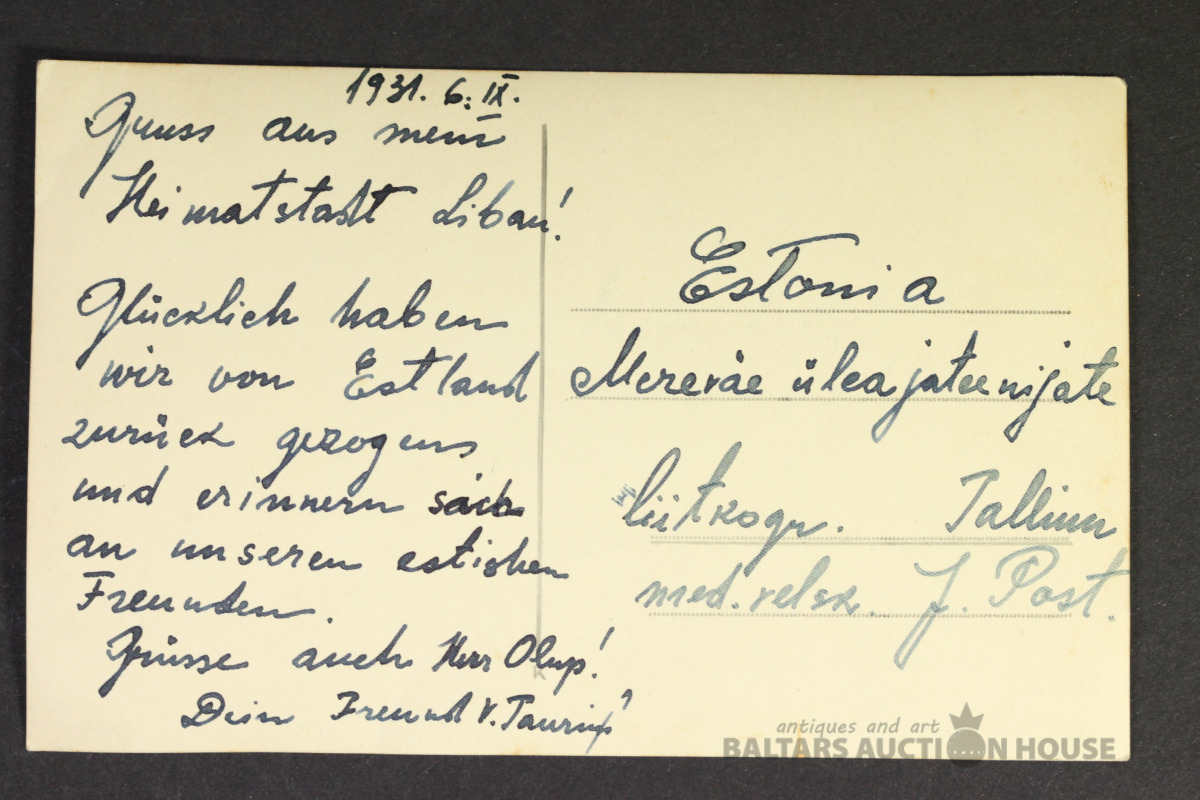 1931. 6. IX.
Gruss aus mein
Heimatstadt Libau!
Glücklich haben
wir von Estland
zurück gezogens
und erinnern sich
an unseren estishen
Freunden.
Grüsse auch Herr Olup!
Dein Freund V. Taurinš
Estonia
Mereväe üleajateenijate
liitkogu. Tallinn
med. velsk. J. Post.
antiques and art
BALTARS AUCTION HOUSE